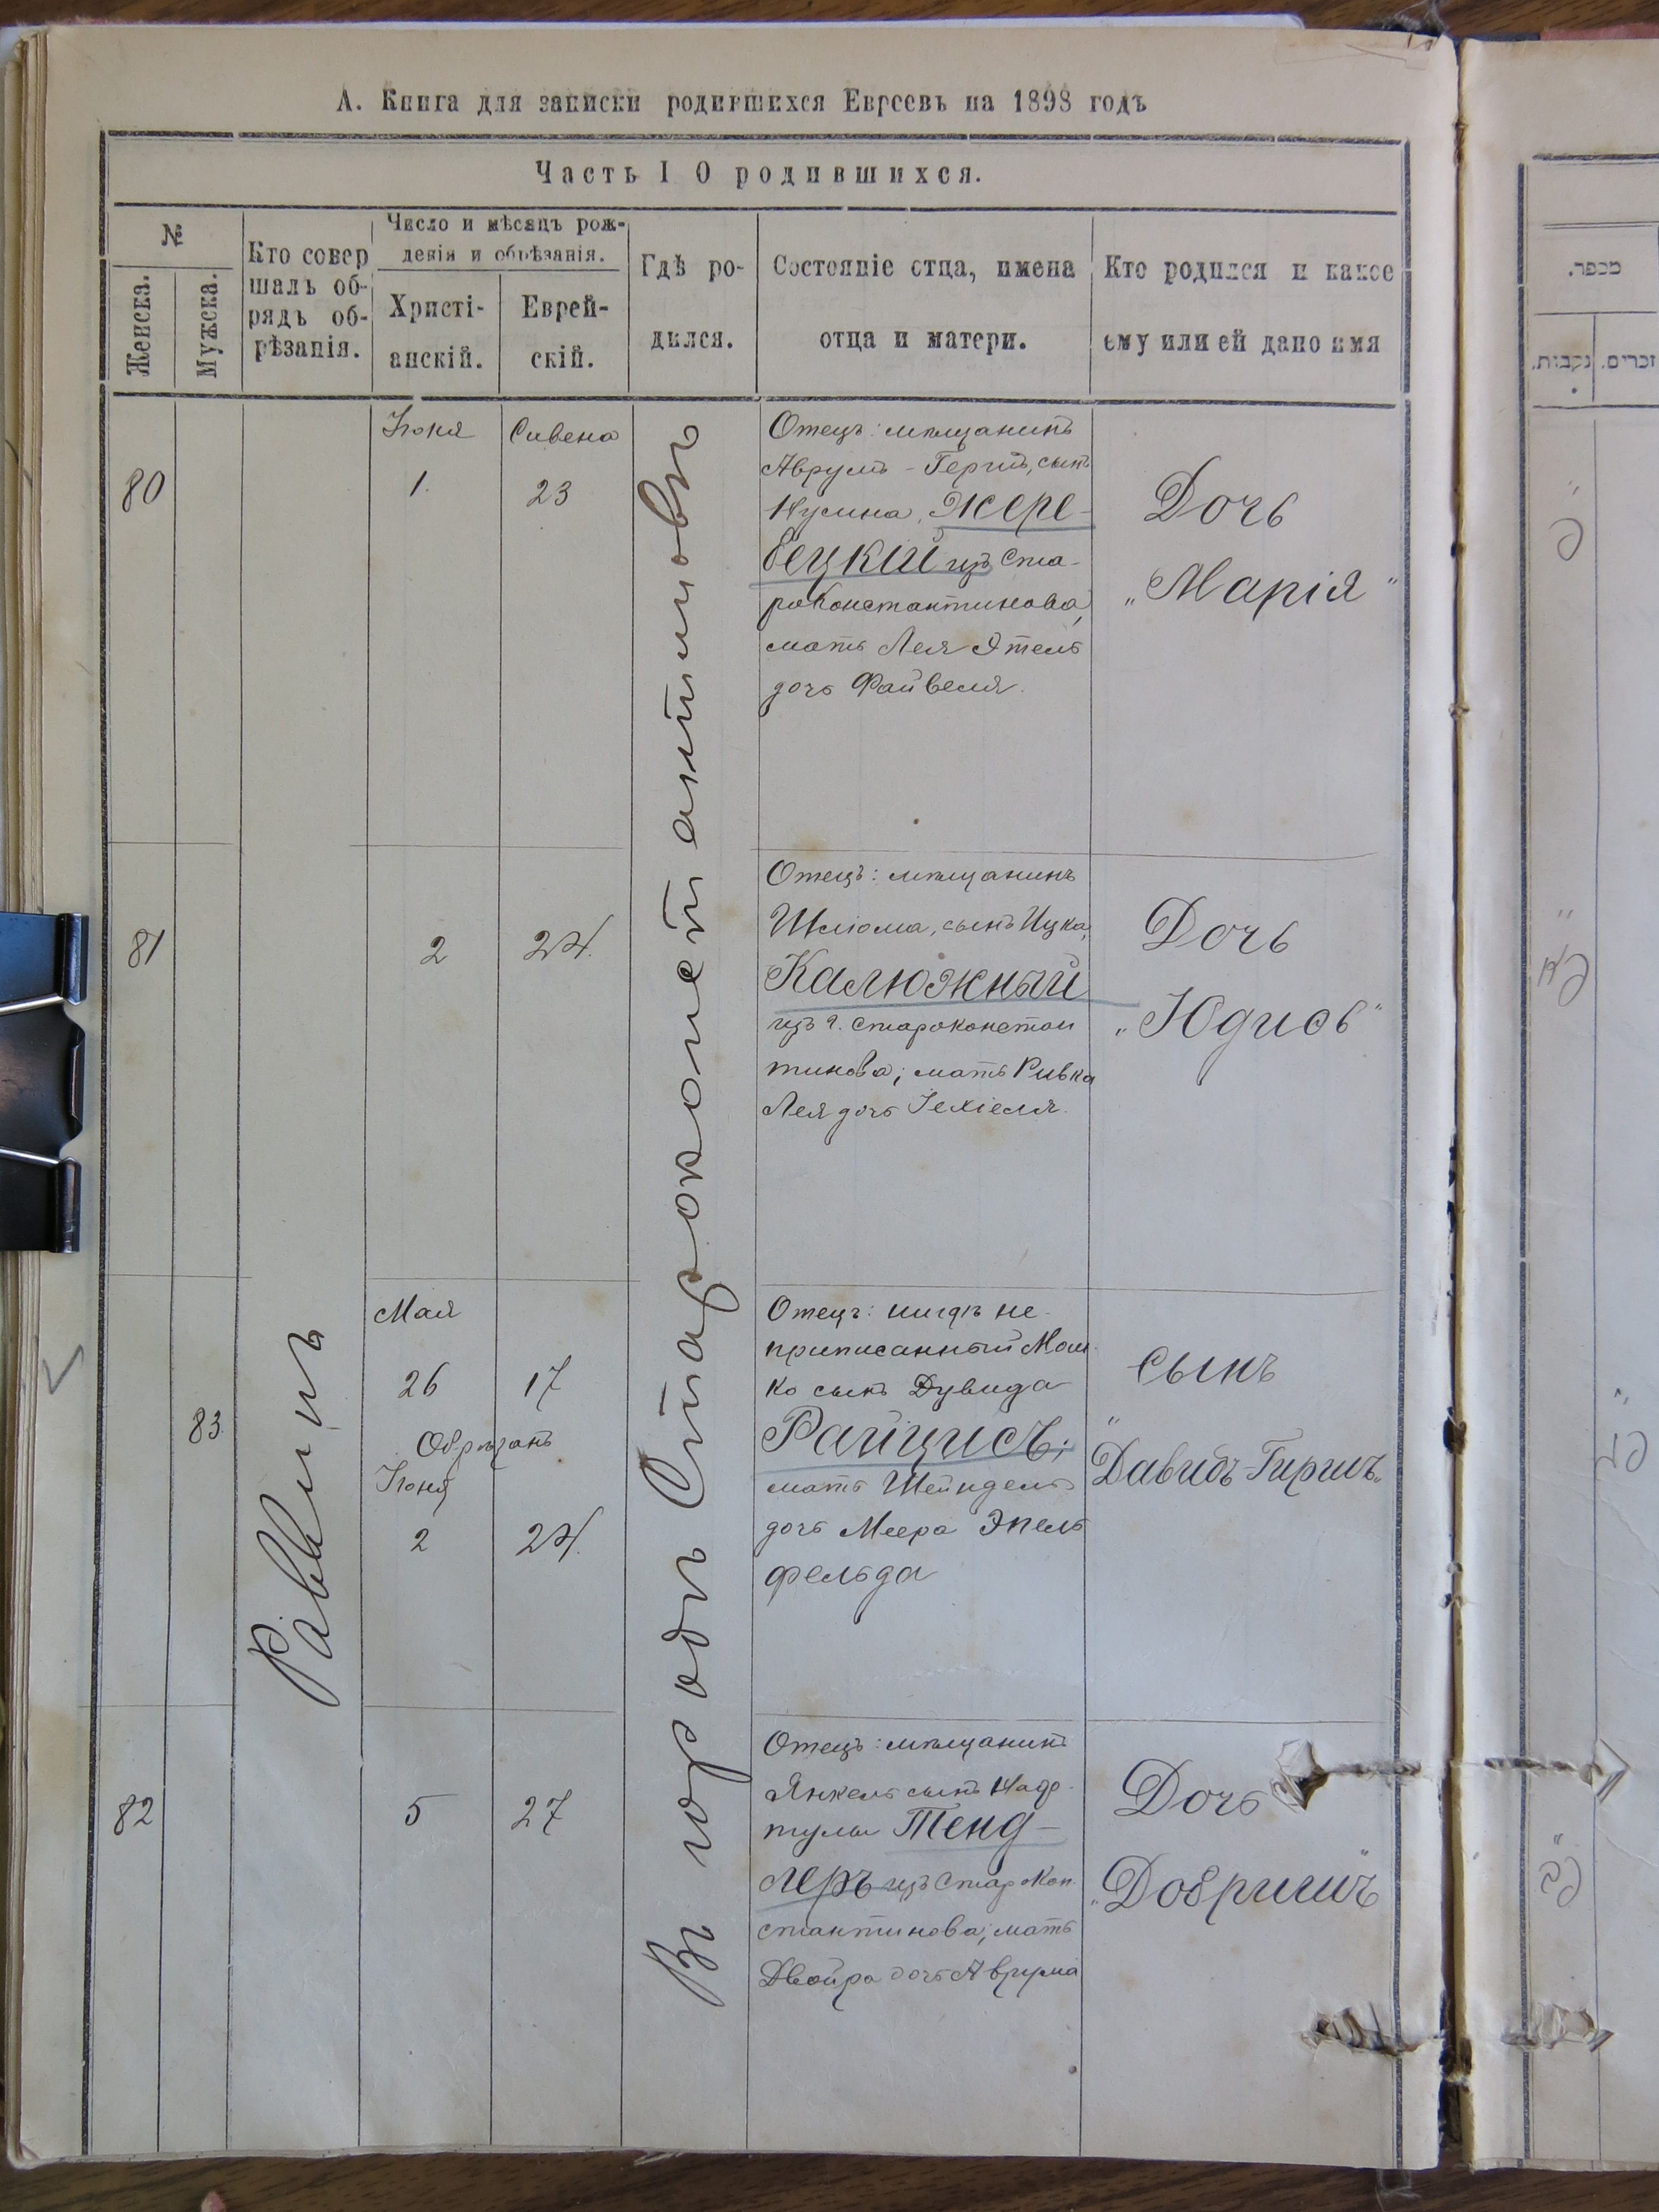 А. Книга для записки родившихся Евреевъ на 1898 годъ
Часть I О родившихся.
№
Женска.
Мужска.
Кто совер
шалъ об-
рядъ об-
рѣзанія.
Число и мѣсяцъ рож-
денія и обрѣзанія.
Христі-
анскій.
Еврей-
скій.
Гдѣ ро-
дился.
Состояніе отца, имена
отца и матери.
Кто родился и какое
ему или ей дано имя
מספר.
נקבות.
זכרים.
80
Іюня
1.
Сивена
23
Отецъ: мѣщанинъ
Аврумъ - Гершъ, сынъ
Нусина, Жере-
бецкій изъ Ста-
роконстантинова,
мать Лея Этель
дочь Файвеля.
Дочь
„Марія"
פ
81
2
24.
Отецъ: мѣщанинъ
Шлюма, сынъ Ицка,
Калюжный
изъ г. Староконстан
тинова; мать Ривка
Лея дочь Іехіеля.
Дочь
„Юдись"
פא
83.
Раввинъ
Мая
26
17
Обрѣзанъ
Іюня
2
24.
Отецъ: нигдѣ не-
приписанный Мош-
ко сынъ Дувида
Райцисъ;
мать Шейндель
дочь Меера Эпель
фельда
Сынъ
"Давидъ-Гиршъ„
פג
82
5
27
Отецъ: мѣщанинъ
Янкель сынъ Наф-
тулы Тенд-
леръ изъ Старокон
стантинова; мать
Двойра дочь Аврума
Дочь
„Добришъ"
פב
Въ городѣ Староконстантиновѣ